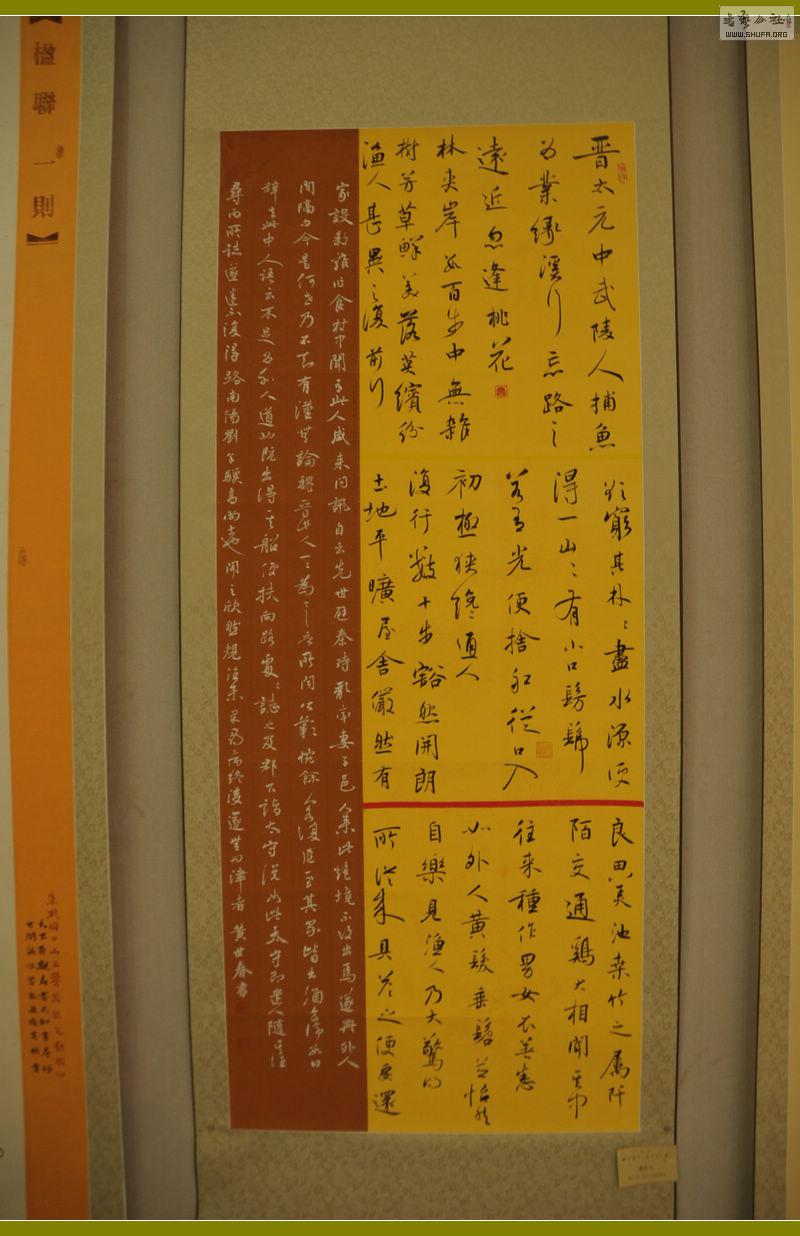 書藝公社
WWW.SHUFA.ORG
晋太元中武陵人捕魚
為業緣溪行忘路之
遠近忽逢桃花
林夾岸數百步中無雜
樹芳草鮮美落英繽紛
漁人甚異之復前行
欲窮其林々盡水源便
得一山々有小口髣髴
若有光便捨船從口入
初極狹纔通人
復行數十步豁然開朗
土地平曠屋舍儼然有
良田美池桑竹之屬阡
陌交通鷄犬相聞其中
往来種作男女衣着悉
如外人黄髮垂髫並怡然
自樂見漁人乃大驚問
所從来具答之便要還
家設殺雞作食村中聞有此人咸来問訊自云先世避秦時亂率妻子邑人来此絶境不復出焉遂與外人
間隔問今是何世乃不知有漢無論魏晋此人一一為具言所聞皆歎惋餘人各復延至其家皆出酒食停數日
辭去此中人語云不足為外人道也既出得其船便扶向路處々誌之及郡下詣太守説如此太守即遣人隨其往
尋向所誌遂迷不復得路南陽劉子驥高尚士也聞之欣然規往未果尋病終後遂無問津者 黄世春書
【楹聯一則】